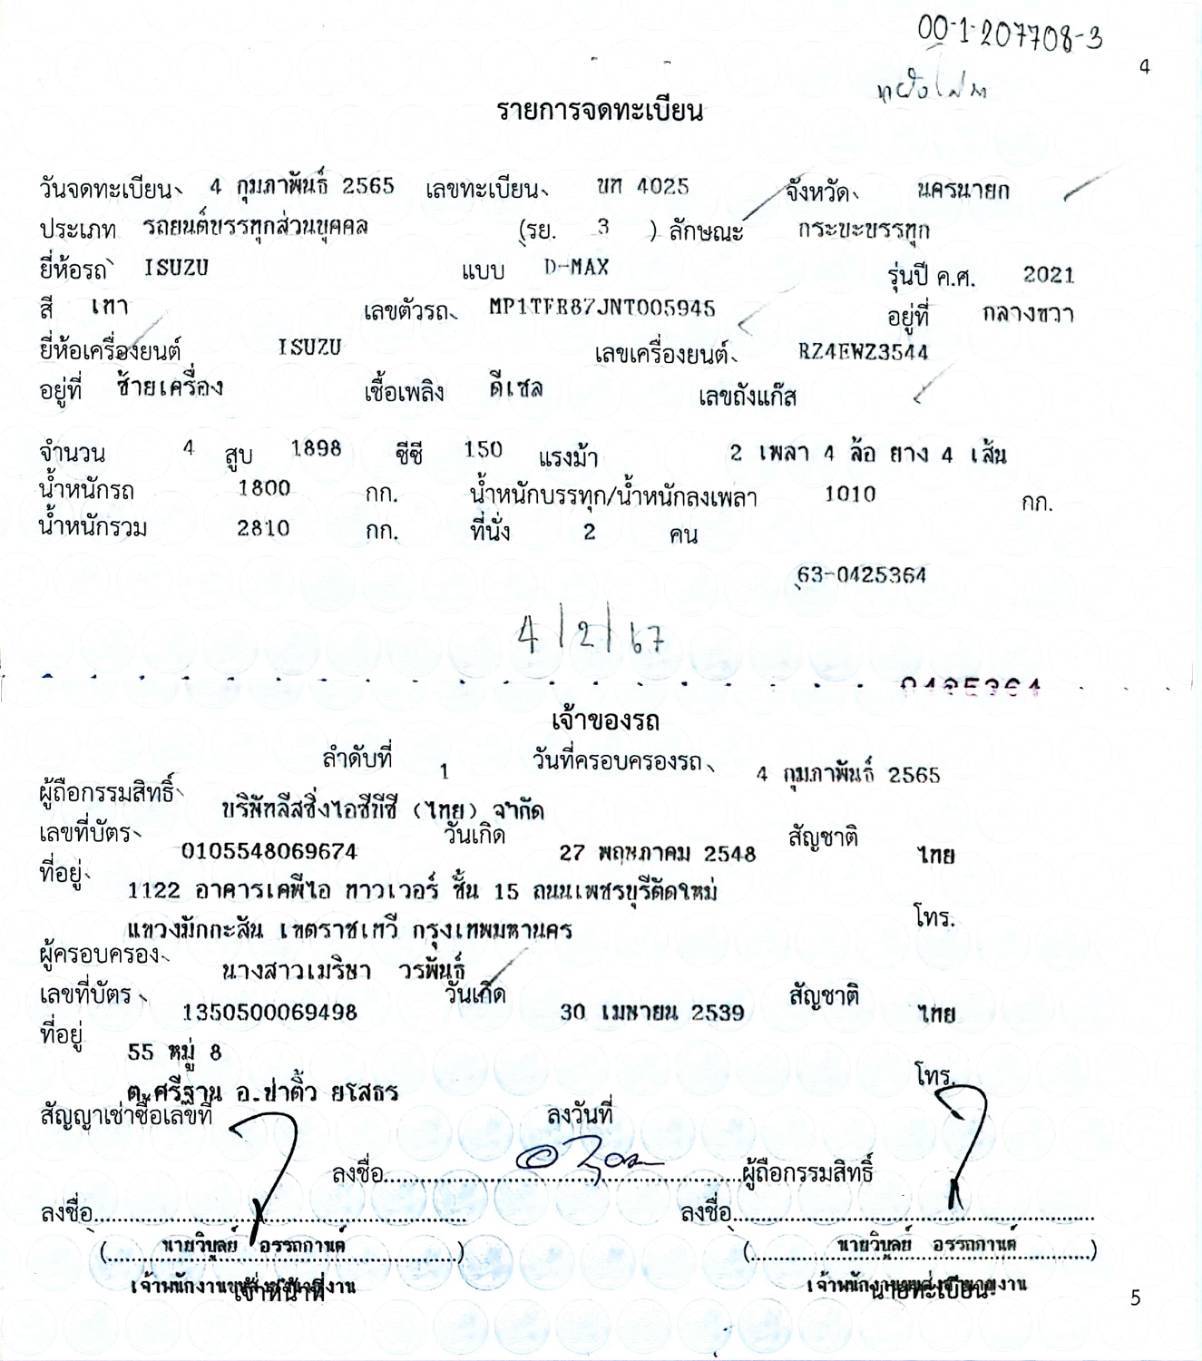 00-1-207708-3
4
รายการจดทะเบียน
วันจดทะเบียน 4 กุมภาพันธ์ 2565 เลขทะเบียน บท 4025 จังหวัด นครนายก
ประเภท รถยนต์บรรทุกส่วนบุคคล (รย. 3 ) ลักษณะ กระบะบรรทุก
ยี่ห้อรถ ISUZU แบบ D-MAX รุ่นปี ค.ศ. 2021
สี เทา เลขตัวรถ MP1TFR87JNT005945 อยู่ที่ กลางขวา
ยี่ห้อเครื่องยนต์ ISUZU เลขเครื่องยนต์ RZ4EWZ3544
อยู่ที่ ซ้ายเครื่อง เชื้อเพลิง ดีเซล เลขถังแก๊ส
จำนวน 4 สูบ 1898 ซีซี 150 แรงม้า 2 เพลา 4 ล้อ ยาง 4 เส้น
น้ำหนักรถ 1800 กก. น้ำหนักบรรทุก/น้ำหนักลงเพลา 1010 กก.
น้ำหนักรวม 2810 กก. ที่นั่ง 2 คน
63-0425364
4/2/67
เจ้าของรถ
ลำดับที่ 1 วันที่ครอบครองรถ 4 กุมภาพันธ์ 2565
ผู้ถือกรรมสิทธิ์ บริษัทลีสซิ่งไอซีบีซี (ไทย) จำกัด
เลขที่บัตร 0105548069674 วันเกิด 27 พฤษภาคม 2548 สัญชาติ ไทย
ที่อยู่ 1122 อาคารเคพีไอ ทาวเวอร์ ชั้น 15 ถนนเพชรบุรีตัดใหม่
แขวงมักกะสัน เขตราชเทวี กรุงเทพมหานคร โทร.
ผู้ครอบครอง นางสาวเมริษา วรพันธ์
เลขที่บัตร 1350500069498 วันเกิด 30 เมษายน 2539 สัญชาติ ไทย
ที่อยู่ 55 หมู่ 8
ต.ศรีฐาน อ.ป่าติ้ว ยโสธร โทร.
สัญญาเช่าซื้อเลขที่ ลงวันที่
ลงชื่อ ผู้ถือกรรมสิทธิ์
ลงชื่อ ลงชื่อ
( นายวิบูลย์ อรรถกานต์ ) ( นายวิบูลย์ อรรถกานต์ )
เจ้าพนักงานขนส่งชำนาญงาน เจ้าพนักงานขนส่งชำนาญงาน
เจ้าหน้าที่ นายทะเบียน
5